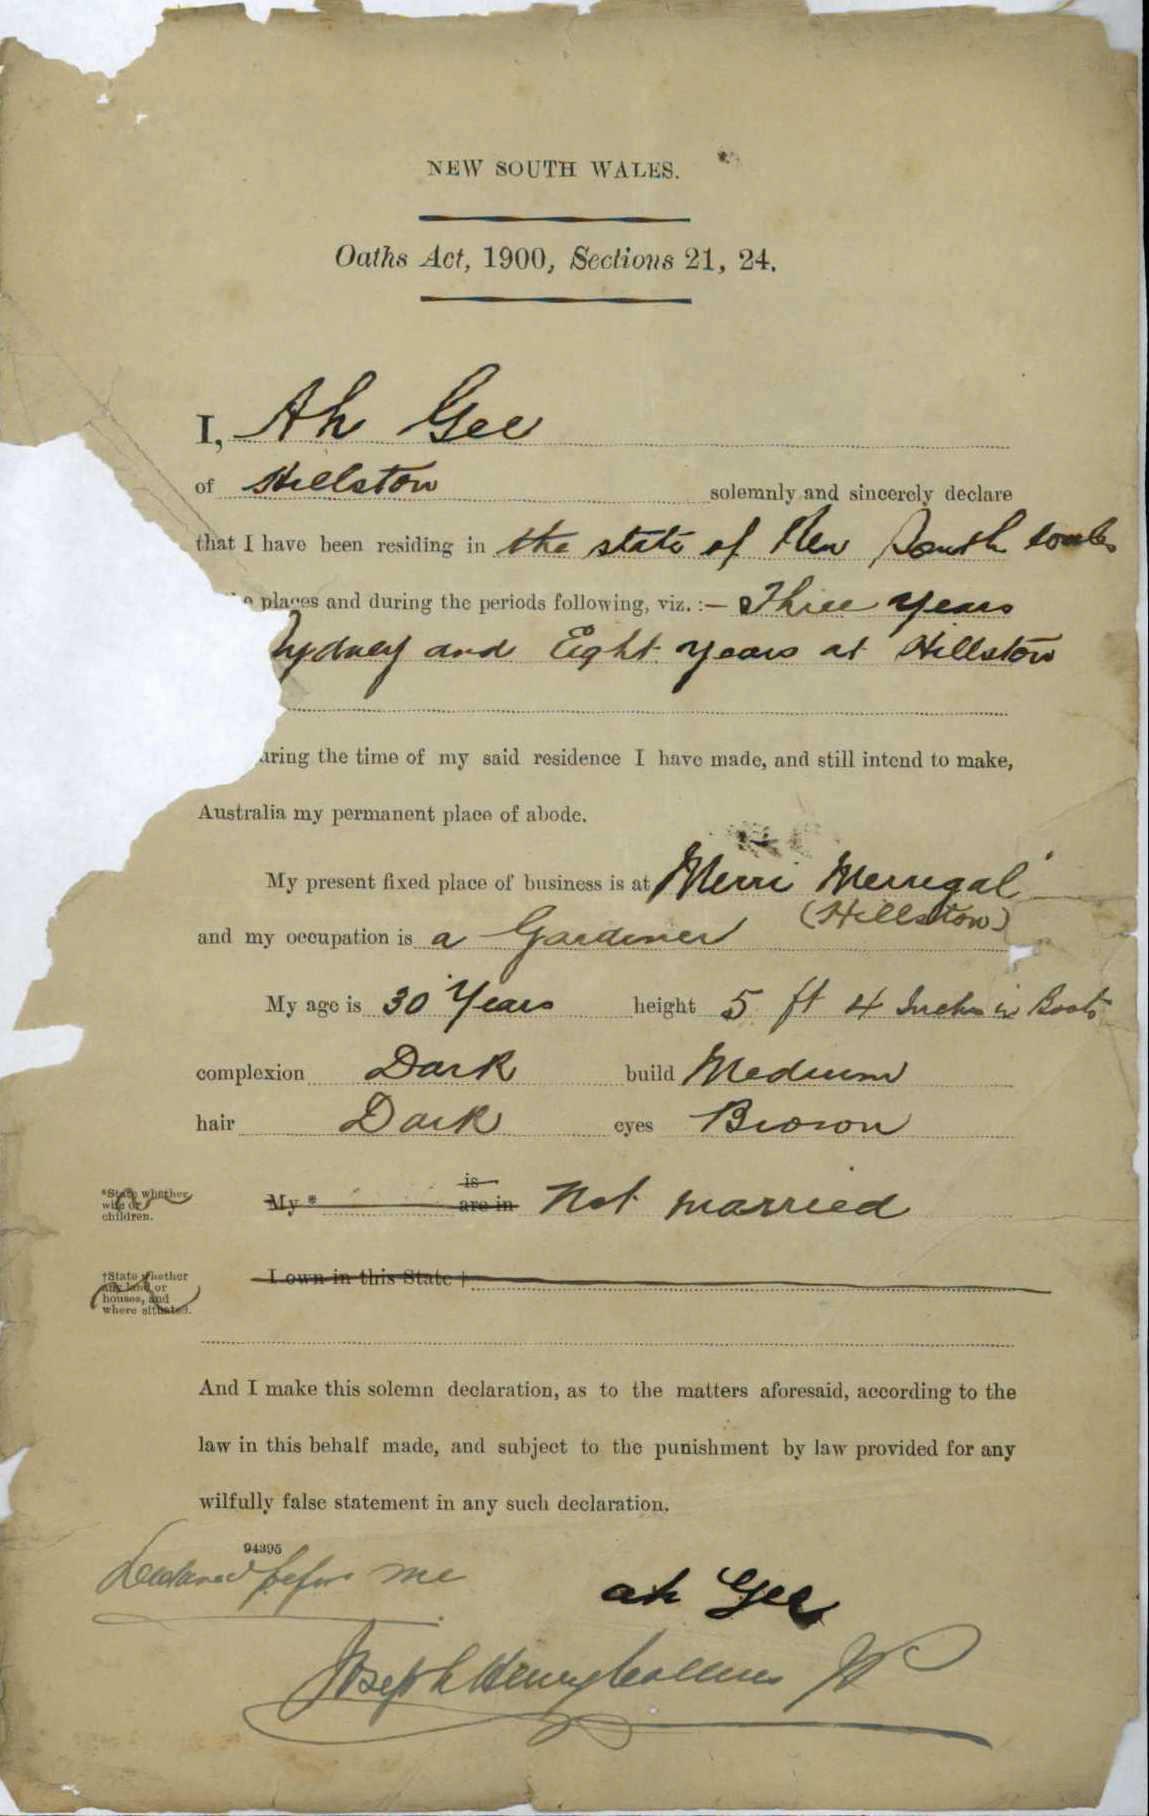 NEW SOUTH WALES.
Oaths Act, 1900, Sections 21, 24.
I, Ah Gee
of Hillston solemnly and sincerely declare
that I have been residing in the state of New South Wales
places and during the periods following, viz. :— Three years
Sydney and Eight years at Hillston
uring the time of my said residence I have made, and still intend to make,
Australia my permanent place of abode.
My present fixed place of business is at Merri Merrigal
(Hillston)
and my occupation is a Gardiner
My age is 30 Years height 5 ft 4 Inches in Boots
complexion Dark build Medium
hair Dark eyes Brown
*State whether
wife or
children.
My * is
are in Not married
†State whether
any land or
houses, and
where situated.
I own in this State †
And I make this solemn declaration, as to the matters aforesaid, according to the
law in this behalf made, and subject to the punishment by law provided for any
wilfully false statement in any such declaration.
94395
Declared before me
ah Gee
Joseph Henry Collins JP